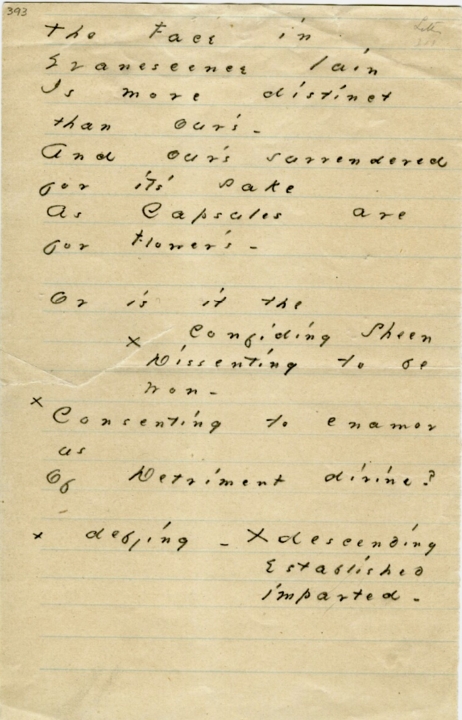 393
The Face in
Evanescence lain
Is more distinct
than our's -
And our's surrendered
for it's sake
As Capsules are
for Flower's -
Or is it the
Confiding Sheen
x Dissenting to be
won -
x Consenting to enamor
us
Of Detriment divine?
x defying - x descending
Established
imparted -